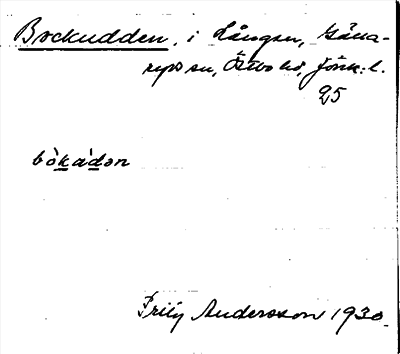 Bockudden, i Lången, Gälla-
ryds sn, Östbo hd, Jönk. l.
25
bòkádən
Frily Andersson 1930.